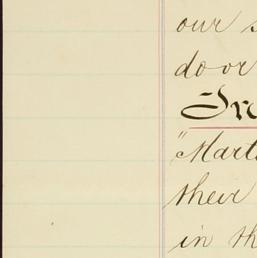 our
door
In
"Mart
their
in th